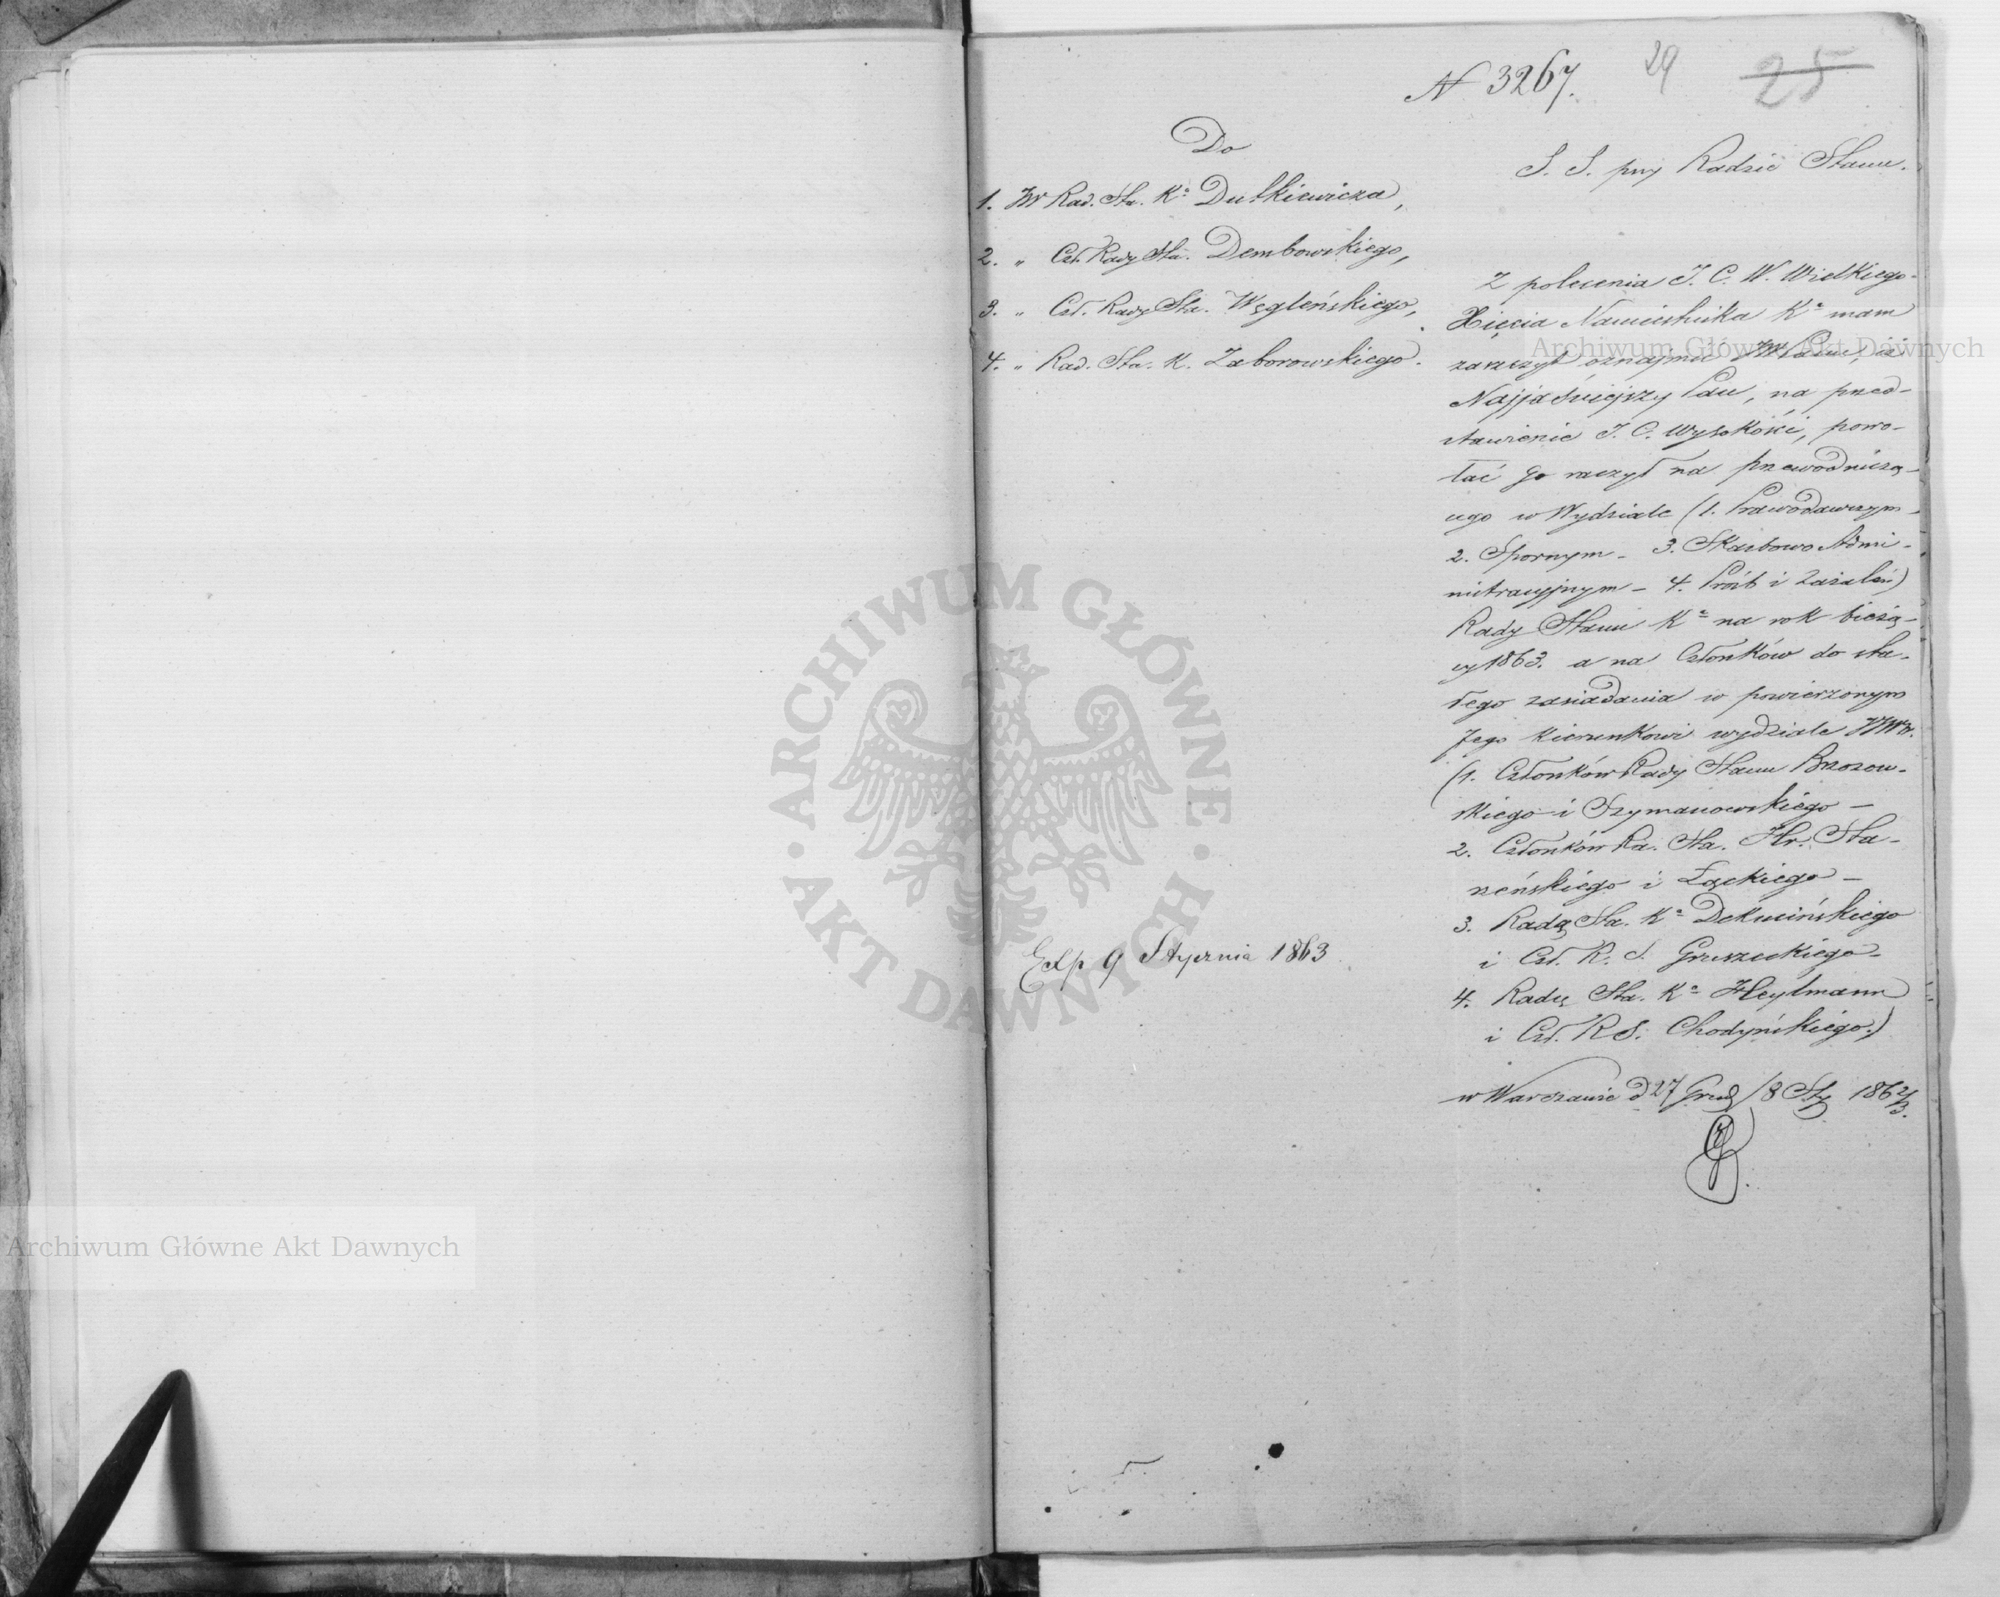 N 3267.
29
25
Do
1. JW Rad. Sta. Kr Dutkiewicza,
2. " Czł. Rady Sta. Dembowskiego,
3. " Czł. Rady Sta. Węgleńskiego,
4. " Rad. Sta. K. Zaborowskiego.
Exp 9 Stycznia 1863
S. S. przy Radzie Stanu.
Z polecenia J. C. W. Wielkiego
Xięcia Namiestnika Kr mam
zaszczyt oznajmić JWPanu, iż
Najjaśniejszy Pan, na przed-
stawienie J. C. Wysokości, powo-
łać go raczył na przewodniczą-
cego w Wydziale (1. Prawodawczym
2. Spornym - 3. Skarbowo Admi-
nistracyjnym - 4. Próśb i Zażaleń)
Rady Stanu Kr na rok bieżą-
cy 1863. a na Członków do sta-
łego zasiadania w powierzonym
Jego kierunkowi wydziale JJWW.
(1. Członków Rady Stanu Brzozow-
skiego i Szymanowskiego -
2. Członków Ra. Sta. Hr. Sta-
rzeńskiego i Łąckiego -
3. Radcę Sta. Kr Dekucińskiego
i Czł. R. S. Gruszeckiego -
4. Radcę Sta. Kr Heylmann
i Czł. R S. Chodyńskiego.)
w Warszawie d 27 Grud/8 Sty 1862/3.
ARCHIWUM GŁÓWNE AKT DAWNYCH
Archiwum Główne Akt Dawnych
Archiwum Główne Akt Dawnych